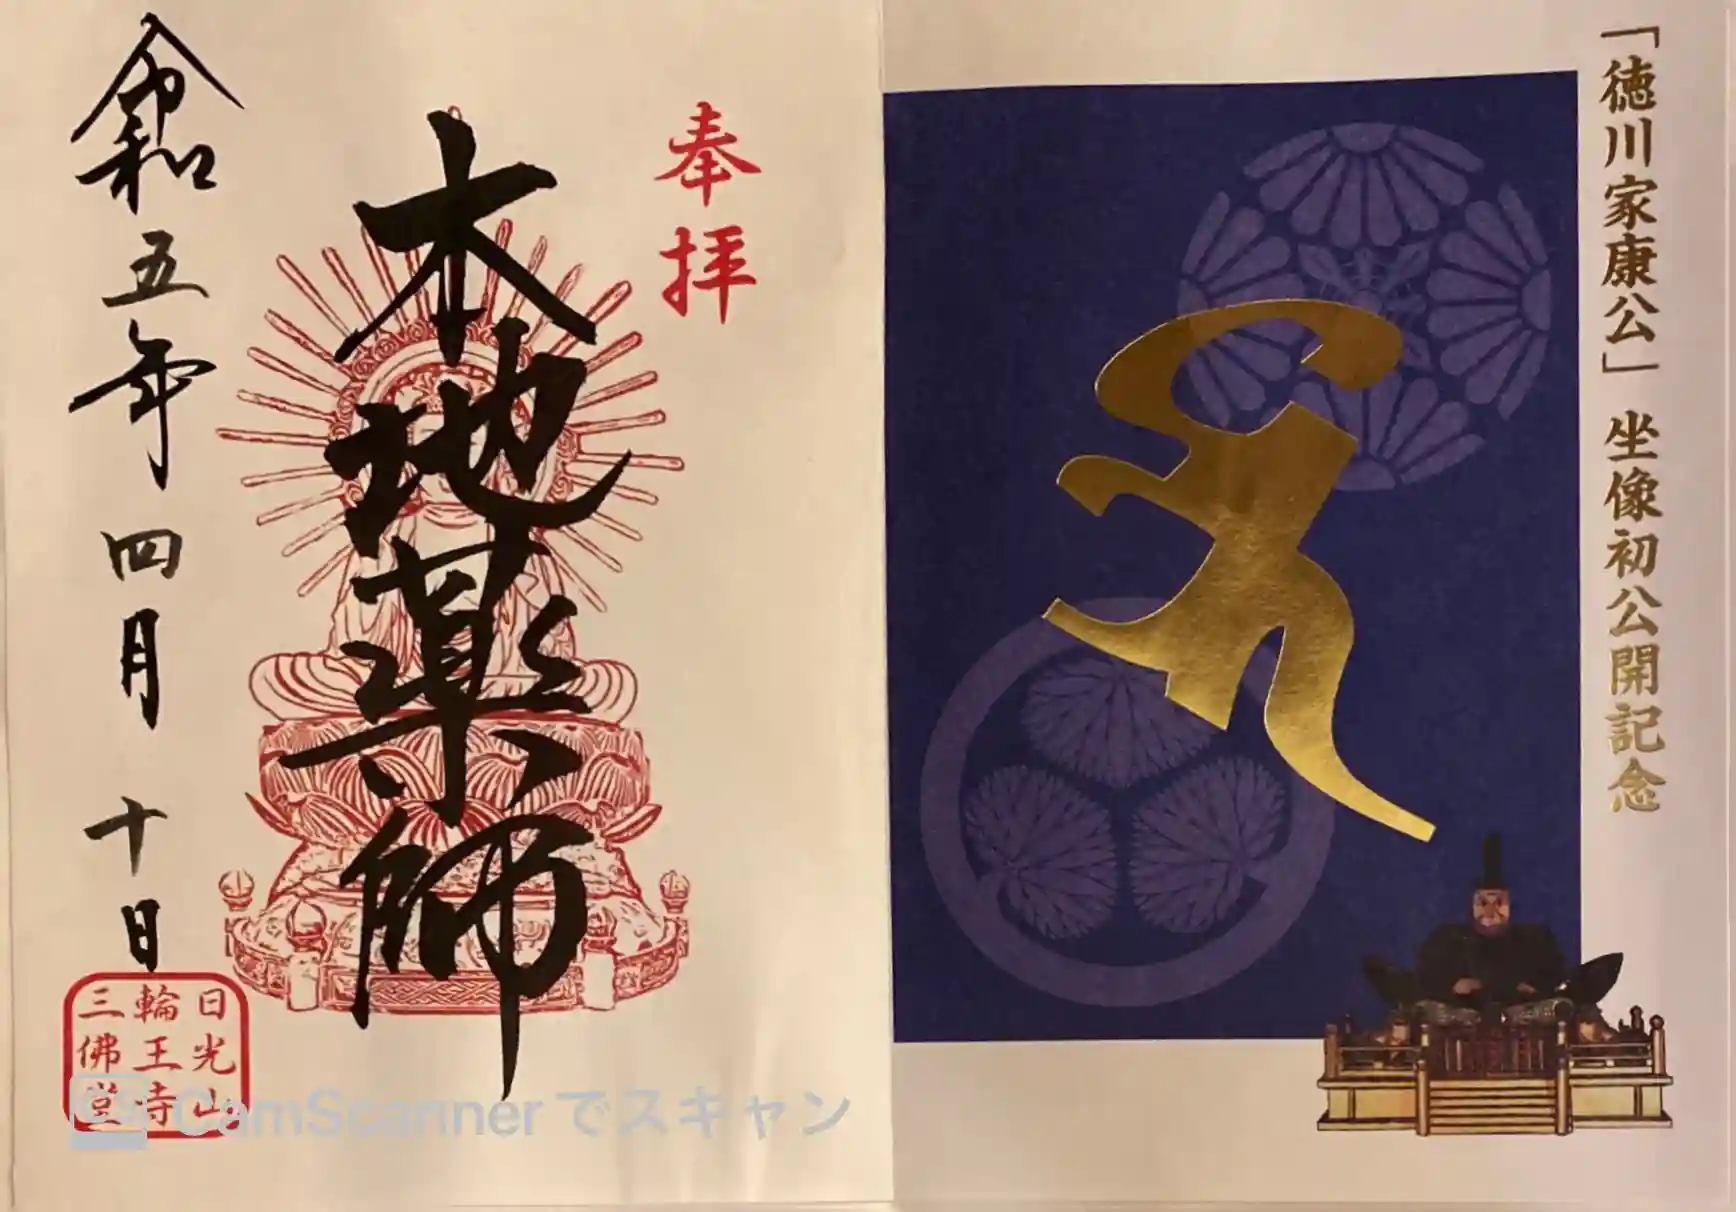 「徳川家康公」坐像初公開記念
奉拝
本地薬師
令和五年四月十日
日光山
輪王寺
三佛堂
CamScannerでスキャン